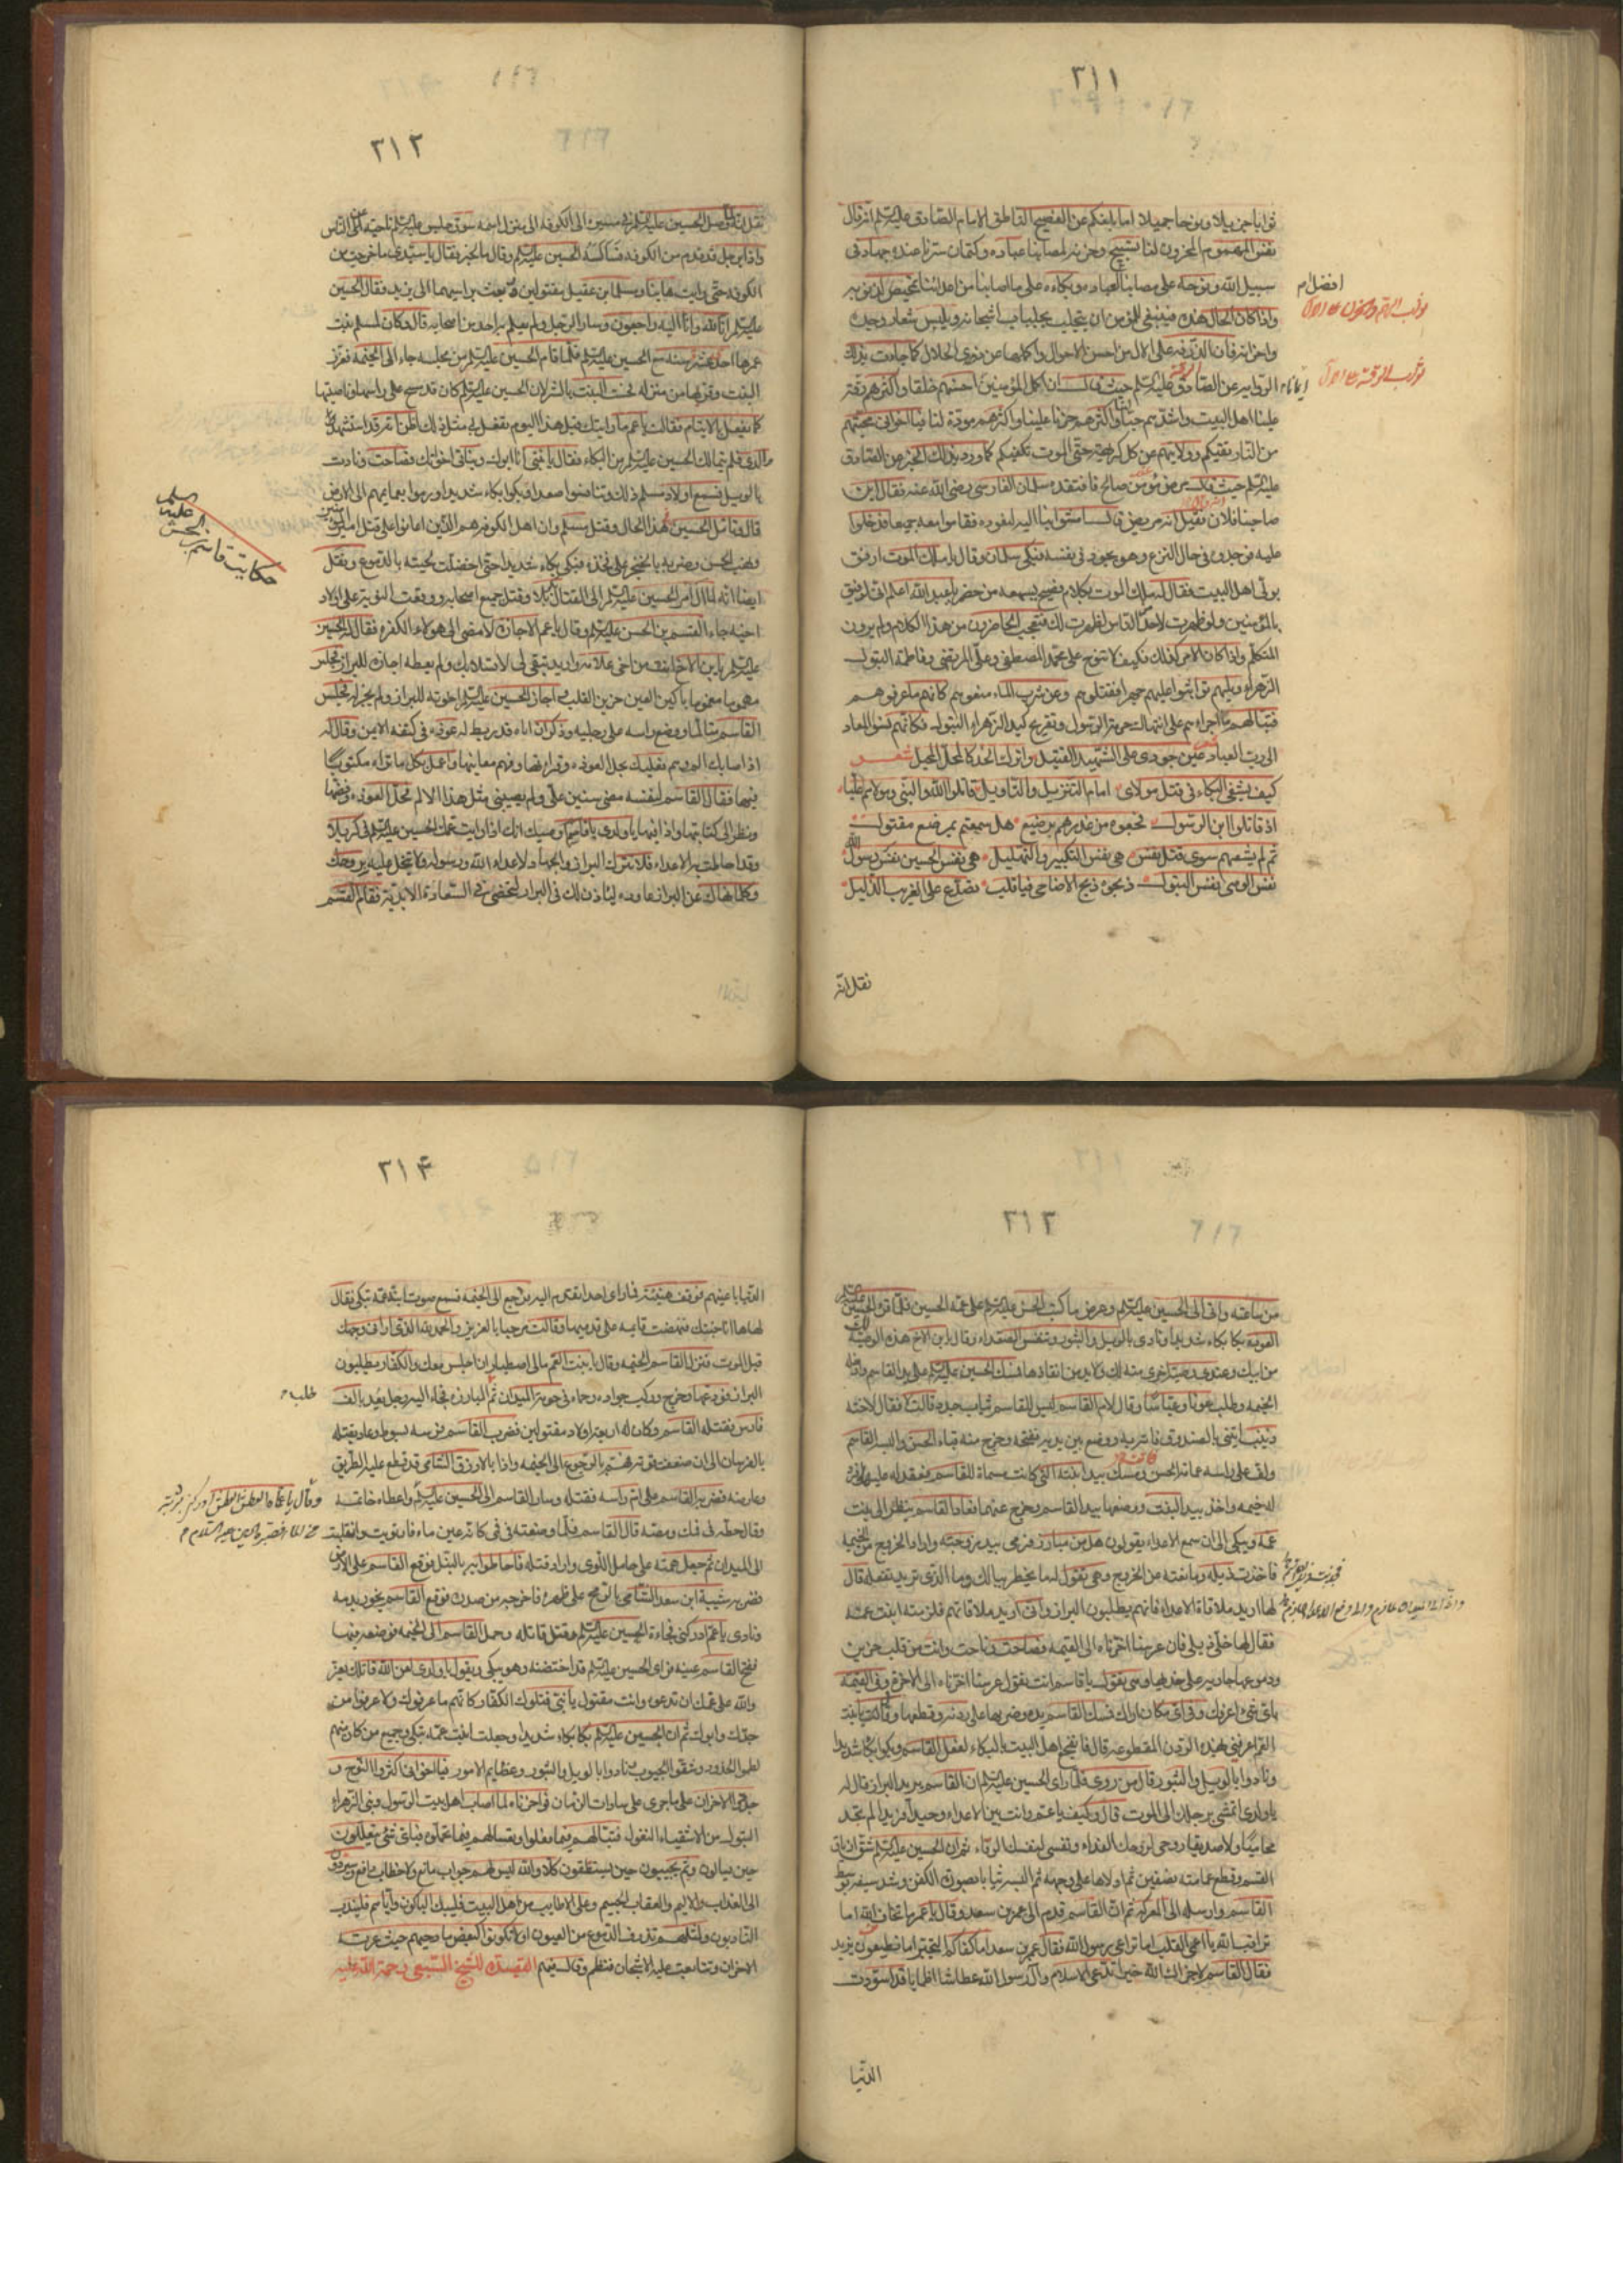 ٣١١
ثوابا جزيلا ومنحا جميلا اما بلغكم عن الفصيح الناطق الامام الصادق عليه السلام انه قال
نفس المهموم المحزون لنا تسبيح وحزنه لمصابنا عباده وكتمان سرنا عنده جهاد في
سبيل الله ونوحه على مصابنا العباده وبكاءه على ما اصابنا من اعدائنا تمحيص لذنوبه
افضل م
واذا كان الحال هذه فينبغي للمؤمن ان يتجلبب بجلباب اشجانه ويلبس شعار وجده
واحزانه فان الذ في الحلال كما جاءت بذلك
الرواية عن الصادق عليه السلام حيث قال ان اكمل المؤمنين احسنهم خلقا واكثرهم رقة
علينا اهل البيت واشدهم حبا لنا واكثرهم حزنا علينا واكثرهم مودة لنا فيا اخواني محبتهم
من النار تقيكم وولايتهم من كل كريهة حتى الموت تكفيكم كما ورد بذلك الخبر عن الصادق
عليه السلام حيث قال مرض مؤمن صالح فافتقده سلمان الفارسي رضي الله عنه فقال اين
صاحبنا فلان فقيل انه مريض قال امشوا بنا اليه لنعوده فقاموا معه جميعا فدخلوا
عليه فوجدوه في حال النزع وهو يجود في نفسه فبكى سلمان وقال يا ملك الموت ارفق
بولي اهل البيت فقال له ملك الموت بكلام فصيح يسمعه من حضر يا عبد الله اعلم اني لرفيق
بالمؤمنين ولو ظهرت لاحد من الناس لظهرت لك فتعجب الحاضرون من هذا الكلام ولم يرون
المتكلم واذا كان الامر كذلك فكيف لا تنوح على محمد المصطفى وعلي المرتضى وفاطمة البتول
الزهراء ويلهم توا ثبوا عليهم جهرا فقتلوهم وعن شرب الماء منعوهم كانهم ما عرفوهم
فتبا لهم ما اجراهم على انتهاك حرمة الرسول وتقريح كبد الزهراء البتول فكانهم نسوا المعاد
الى رب العباد فيا عين جودي على الشهيد القتيل واترك الخد كالمحل المحيل شعر
كيف يشفي البكاء في قتل مولاي امام التنزيل والتاويل قاتلوا الله والنبي ومولاهم عليا
اذ قاتلوا ابن الرسول نحبوه من غدرهم برضيع هل سمعتم بمرضع مقتول
ثم لم يشفهم سوى قتل نفس هي نفس التكبير والتهليل هي نفس الحسين نفس رسول الله
نفس الوصي نفس البتول ذبحوه ذبح الاضاحي فيا قلب تصدع على الغريب الذليل
نقل انه
٣١٢
نقل انه لما وصل الحسين عليه السلام في مسيره الى الكوفه الى منزل اسمه سوق جلس عليه السلام ناحيه عن الناس
واذا برجل قد قدم من الكوفه فساله الحسين عليه السلام وقال ما الخبر فقال يا سيدي ما خرجت من
الكوفه حتى رايت هانيا ومسلم ابن عقيل مقتولين وقد بعث براسيهما الى يزيد فقال الحسين
عليه السلام انا لله وانا اليه راجعون وسار الرجل ولم يعلم به احد من اصحابه قال وكان لمسلم بنت
عمرها احد عشر سنه مع الحسين عليه السلام فلما قام الحسين عليه السلام من مجلسه جاء الى الخيمه فعزز
البنت وقربها من منزله فحست البنت بالشر لان الحسين عليه السلام كان قد مسح على راسها وناصيتها
كما يفعل بالايتام فقالت يا عم ما رايتك قبل هذا اليوم تفعل بي مثل ذلك اظن انه قد استشهد
والدي فلم يتمالك الحسين عليه السلام من البكاء فقال يا بنتي انا ابوك وبناتي اخواتك فصاحت ونادت
بالويل فسمع اولاد مسلم ذلك وتنافسوا صعدا فبكوا بكاء شديدا ورموا بعمايمهم الى الارض
قال وقال الحسين هذا الحال وقتل مسلم وان اهل الكوفه هم الذين اعانوا على قتل امير المؤمنين
ونهب الحسن وضربه بالخنجر على فخذه فبكى بكاء شديدا حتى اخضلت لحيته بالدموع ونقل
ايضا انه لما ال امر الحسين عليه السلام الى القتال بكربلا وقتل جميع اصحابه ووقعت النوبة على اولاد
اخيه جاء القاسم بن الحسن عليه السلام وقال يا عم الاجازة لامضي الى هولاء الكفره فقال له الحسين
عليه السلام يا بن الاخ انت من اخي علامه واريد تبقى لي لاتسلا بك ولم يعطه اجازة للبراز فجلس
مهموما مغموما باكي العين حزين القلب اجاز الحسين عليه السلام اخوته للبراز ولم يجزه فجلس
القاسم متالما ووضع راسه على رجليه وذكر ان اباه قد ربط له عوذه في كتفه الايمن وقال له
اذا اصابك الم وهم فعليك بحل العوذه وقراءتها وفهم معانيها واعمل بكل ما تراه مكتوبا
فيها فقال القاسم لنفسه مضى سنين علي ولم يصيبني مثل هذا الالم فحل العوذه وفضها
ونظر الى كتابتها واذا فيها يا ولدي يا قاسم اوصيك انك اذا رايت عمك الحسين عليه السلام في كربلا
وقد احاطت به الاعداء فلا تترك البراز والجهاد لاعداء الله ورسوله ولا تبخل عليه بروحك
وكلما نهاك عن البراز عاوده لياذن لك في البراز لتحضى في السعادة الابدية فقام القسم
حكايت قاسم بن الحسن عليهما السلام
٣١٣
من ساعته واتى الى الحسين عليه السلام وعرض ما كتب الحسن عليه السلام على عمه الحسين فلما قرء الحسين عليه السلام
العوذه بكا بكاء شديدا ونادى بالويل والثبور وتنفس الصعداء وقال يا بن الاخ هذه الوصية
من ابيك وعندي وصية اخرى منه لك ولا بد من انفاذها فمسك الحسين عليه السلام على يد القاسم وادخله
الخيمه وطلب عونا وعباسا وقال لام القاسم اليس للقاسم ثياب جدد قالت لا فقال لاخته
زينب ايتيني بالصندوق فاتت به ووضع بين يديه ففتحه وخرج منه قباء الحسن والبسه القاسم
ولف على راسه عمامة الحسن ومسك بيد ابنته التي كانت مسماة للقاسم فعقد له عليها وافرد
له خيمه واخذ بيد البنت ووضعها بيد القاسم وخرج عنهما فعاد القاسم ينظر الى بنت
عمه ويبكي الى ان سمع الاعداء يقولون هل من مبارز فرمى بيد زوجته واراد الخروج من الخيمه
فاخذت ذيله ومانعته من الخروج وهي تقول له ما يخطر ببالك وما الذي تريد تفعله قال
لها اريد ملاقاة الاعداء فانهم يطلبون البراز واني اريد ملاقاتهم فلزمته ابنت عمه
فقال لها خلي ذيلي فان عرسنا اخرناه الى القيمه فصاحت وناحت وانت من قلب حزين
ودموعها جاريه على خديها وهي تقول يا قاسم انت تقول عرسنا اخرناه الى الاخرة وفي القيمه
باي شيء اعرفك وفي اي مكان اراك فمسك القاسم يده وضربها على ردنه وقطعها وقال يا بنت
العم اعرفيني بهذه الردن المقطوعه قال فانفجع اهل البيت بالبكاء لفعل القاسم وبكوا بكاء شديدا
ونادوا بالويل والثبور قال من روى فلما راى الحسين عليه السلام ان القاسم يريد البراز قال له
يا ولدي اتمشي برجلك الى الموت قال وكيف يا عم وانت بين الاعداء وحيدا فريدا لم تجد
محاميا ولا صديقا روحي لروحك الفداء ونفسي لنفسك الوقاء ثم ان الحسين عليه السلام شق ازياق
القسم وقطع عمامته نصفين ثم ادلاها على وجهه ثم البسه ثيابا بصورة الكفن وشد سيفه بوسط
القاسم وارسله الى المعركه ثم ان القاسم قدم الى عمر بن سعد وقال يا عمر ما تخاف الله اما
تراقب الله يا اعمى القلب اما تراعي رسول الله فقال عمر بن سعد اما كفاكم التجبر اما تطيعون يزيد
فقال القاسم لا جزاك الله خيرا تدعي الاسلام وآل رسول الله عطاشا اظمايا قد اسودت
الدنيا
٣١٤
الدنيا باعينهم فوقف هنيئة فما راى احدا يقدم اليه فرجع الى الخيمه فسمع صوت ابنة عمه تبكي فقال
لها ها انا جئتك فنهضت قايمه على قدميها وقالت مرحبا بالعزيز والحمد لله الذي اراني وجهك
قبل الموت فنزل القاسم الخيمه وقال يا بنت العم مالي اصطبار ان اجلس معك والكفار يطلبون
البراز فودعها وخرج وركب جواده وحماه في حومة الميدان ثم المبارزه فجاء اليه رجل يعد بالف
طلب
فارس فقتله القاسم وكان له اربعة اولاد مقتولين فضرب القاسم فرسه بسوط وعاد يقتله
بالفرسان الى ان ضعفت قوته فهم بالرجوع الى الخيمه واذا بالازرق الشامي قد قطع عليه الطريق
وعارضه فضربه القاسم على ام راسه فقتله وسار القاسم الى الحسين عليه السلام واعطاه خاتمه
وقال حطه في فمك ومصه قال القاسم فلما وضعته في فمي كانه عين ماء فارتويت وانقلبت
الى الميدان ثم جعل همته على حامل اللوى واراد قتله فاحاطوا به بالنبل فوقع القاسم على الارض
فضربه شيبة ابن سعد الشامي بالرمح على ظهره فاخرجه من صدره فوقع القاسم يخور بدمه
ونادى يا عم ادركني فجاءه الحسين عليه السلام وقتل قاتله وحمل القاسم الى الخيمه فوضعه فيها
ففتح القاسم عينه فراى الحسين عليه السلام قد احتضنه وهو يبكي ويقول يا ولدي لعن الله قاتلك يعز
والله على عمك ان تدعوه وانت مقتول يا بني قتلوك الكفار كانهم ما عرفوك ولا عرفوا من
جدك وابوك ثم ان الحسين عليه السلام بكا بكاء شديدا وجعلت ابنت عمه تبكي وجميع من كان منهم
لطموا الخدود وشقوا الجيوب ونادوا بالويل والثبور وعظايم الامور فيا اخواني اكثروا النوح و
الاحزان على ما جرى على سادات الزمان فواحزناه لما اصاب اهل بيت الرسول وبني الزهراء
البتول من الاشقياء النغول فتبا لهم فيما فعلوا وتعسا لهم فيما عملوه فباي شيء يتعللون
حين يسالون وبم يجيبون حين يستنطقون كلا والله ليس لهم جواب مانع ولا خطاب دافع وسيردون
الى العذاب الاليم والعقاب الجسيم وعلى الاطايب من اهل البيت فليبك الباكون واياهم فليندب
النادبون ولمثلهم تذرف الدموع من العيون او لا تكونوا كبعض مادحيهم حيث عرته
الاحزان وتتابعت عليه الاشجان فنظم وقال فيهم القصيدة للشيخ السبعي رحمة الله عليه